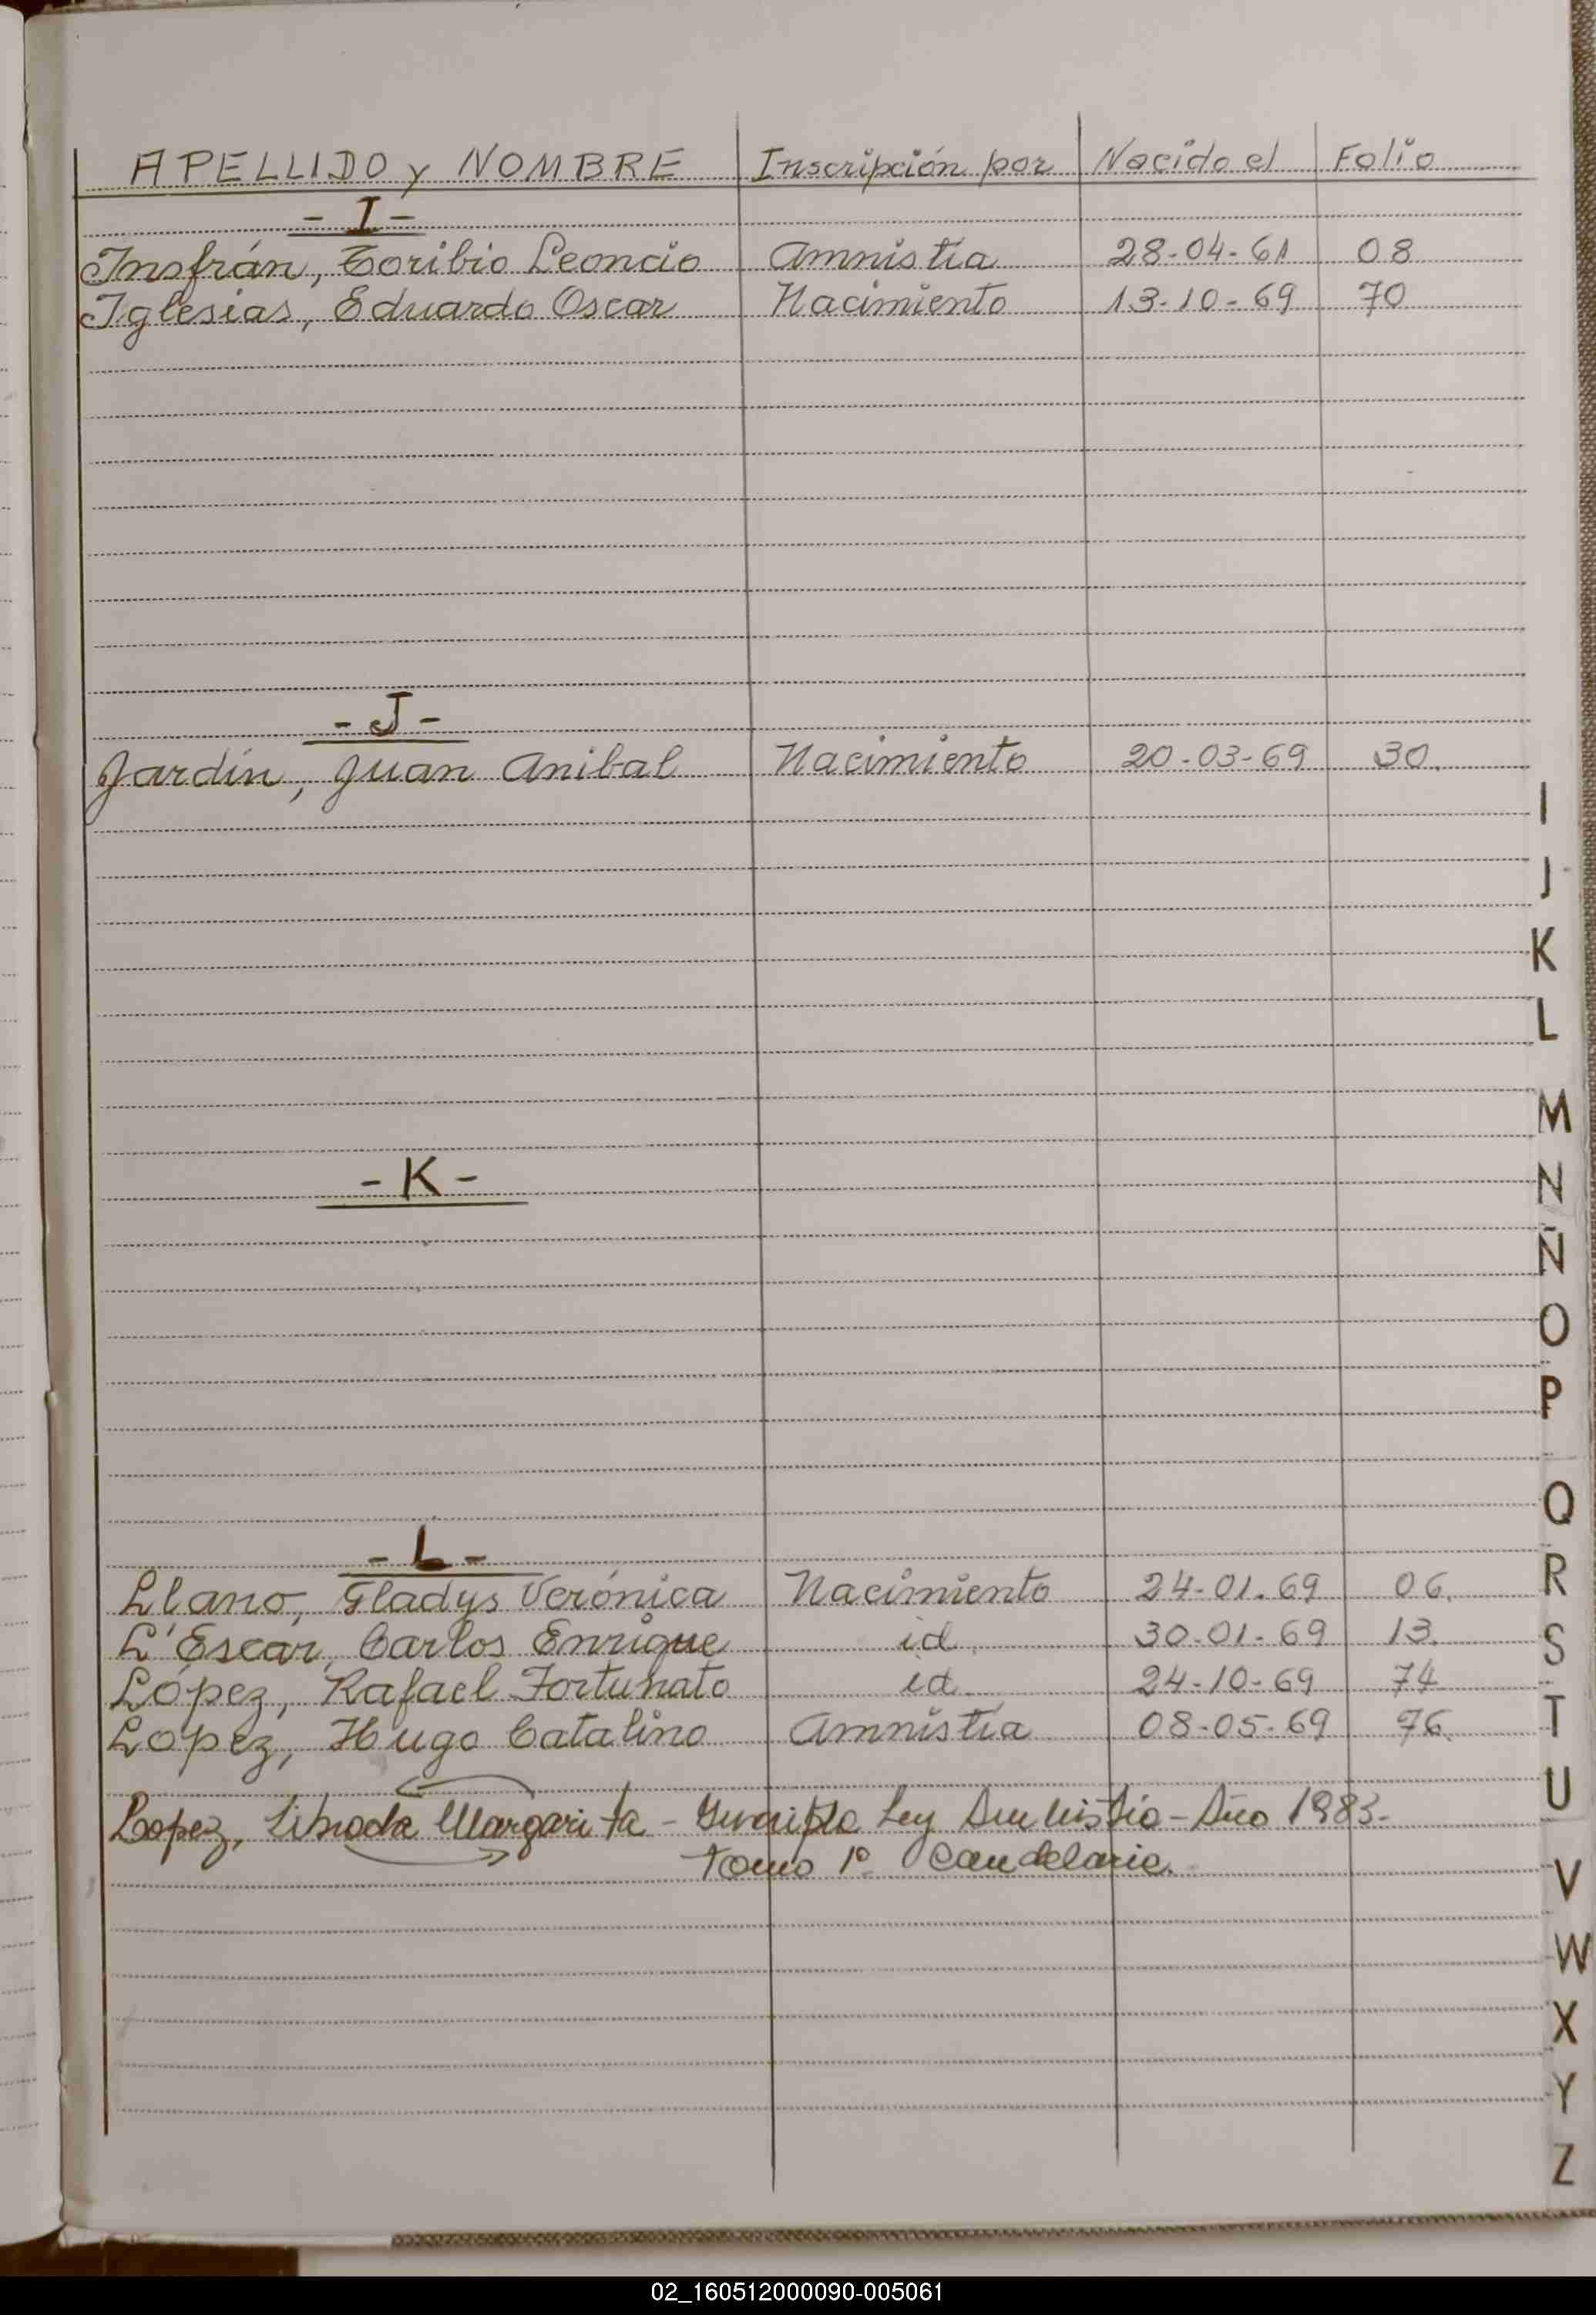 APELLIDO y NOMBRE Inscripción por Nacido el Folio
- I -
Insfrán, Toribio Leoncio Amnistía 28-04-61 08
Iglesias, Eduardo Oscar Nacimiento 13-10-69 70
- J -
Jardín, Juan Anibal Nacimiento 20-03-69 30.
- K -
- L -
Llano, Gladys Verónica Nacimiento 24-01-69 06.
L'Escar, Carlos Enrique id. 30-01-69 13.
López, Rafael Fortunato id. 24-10-69 74
López, Hugo Catalino Amnistía 08-05-69 76.
Lopez, Margarita - Ley Amnistia - Año 1983-
Tomo 1º Candelaria.
I
J
K
L
M
N
Ñ
O
P
Q
R
S
T
U
V
W
X
Y
Z
02_160512000090-005061